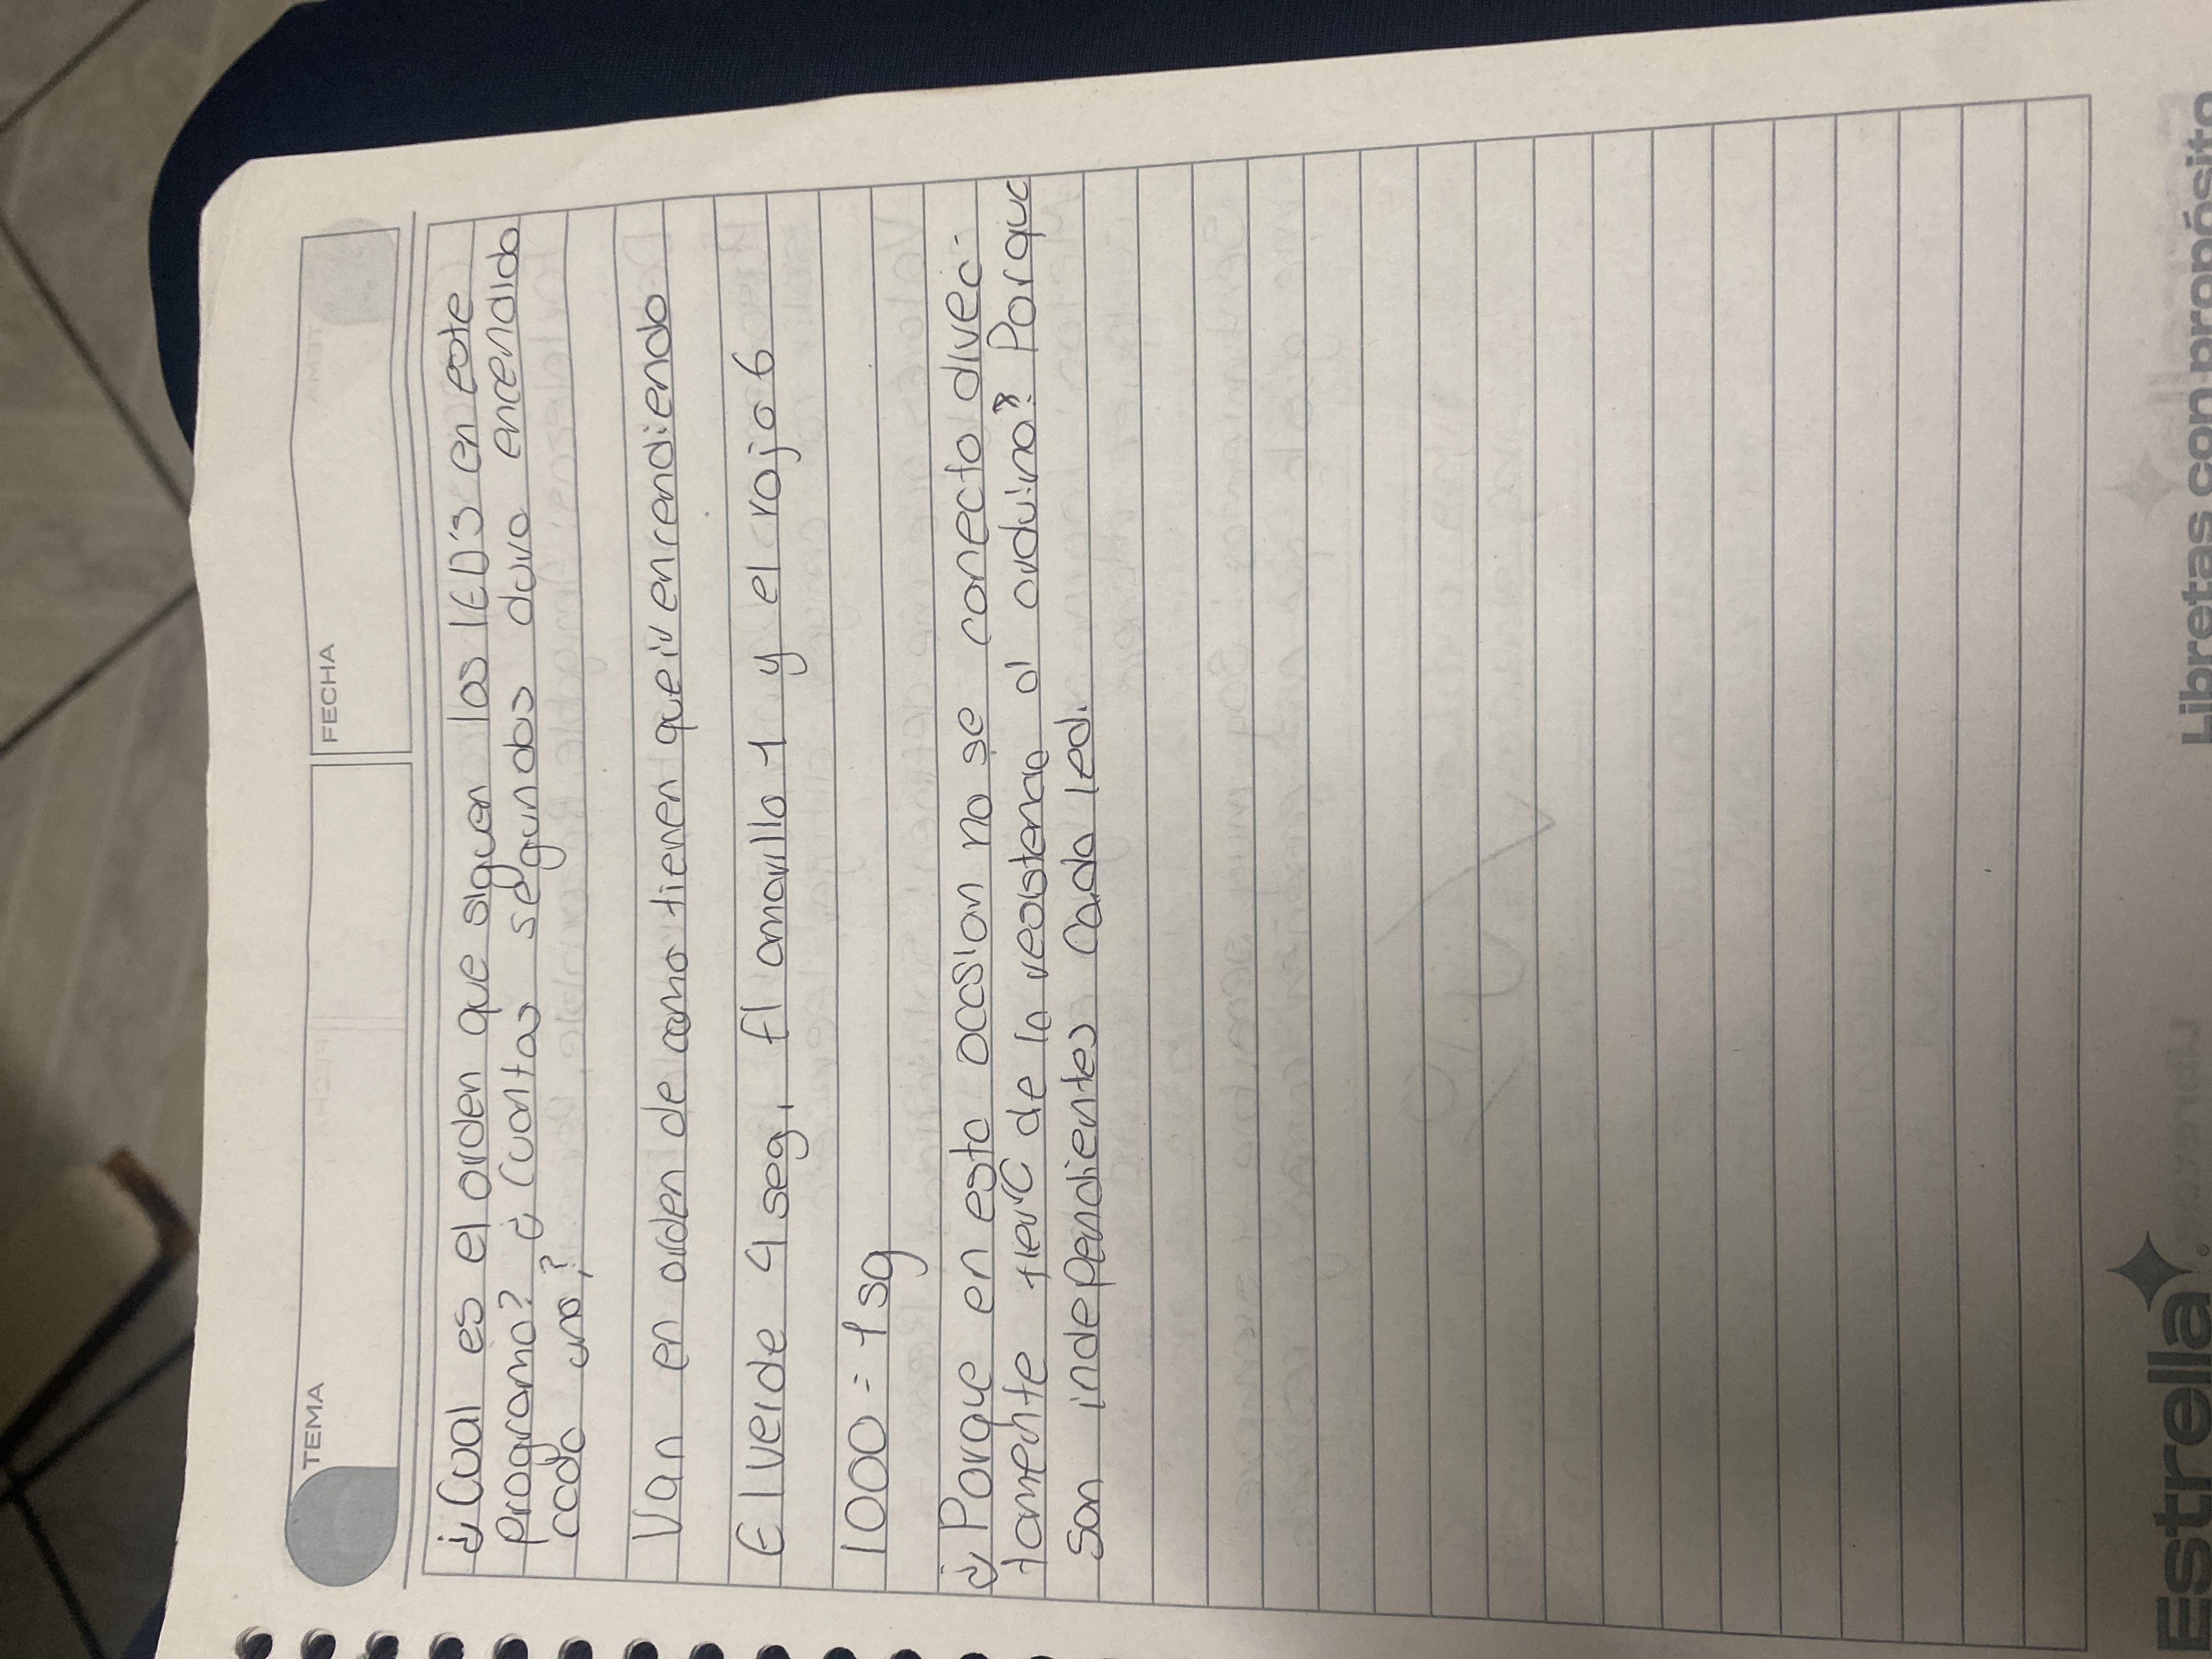 TEMA
FECHA
¿Cual es el orden que siguen los LED's en este
programa? ¿Cuantos segundos dura encendido
cada uno?
Van en orden de como tienen que ir encendiendo
El verde 4 seg, El amarillo 1 y el rojo 6
1000 = 1 sg
¿Porque en esta occsion no se conecto direc-
tamente tierra de la resistencia al arduino? Porque
son independientes cada led.
Estrella
Libretas con propósito